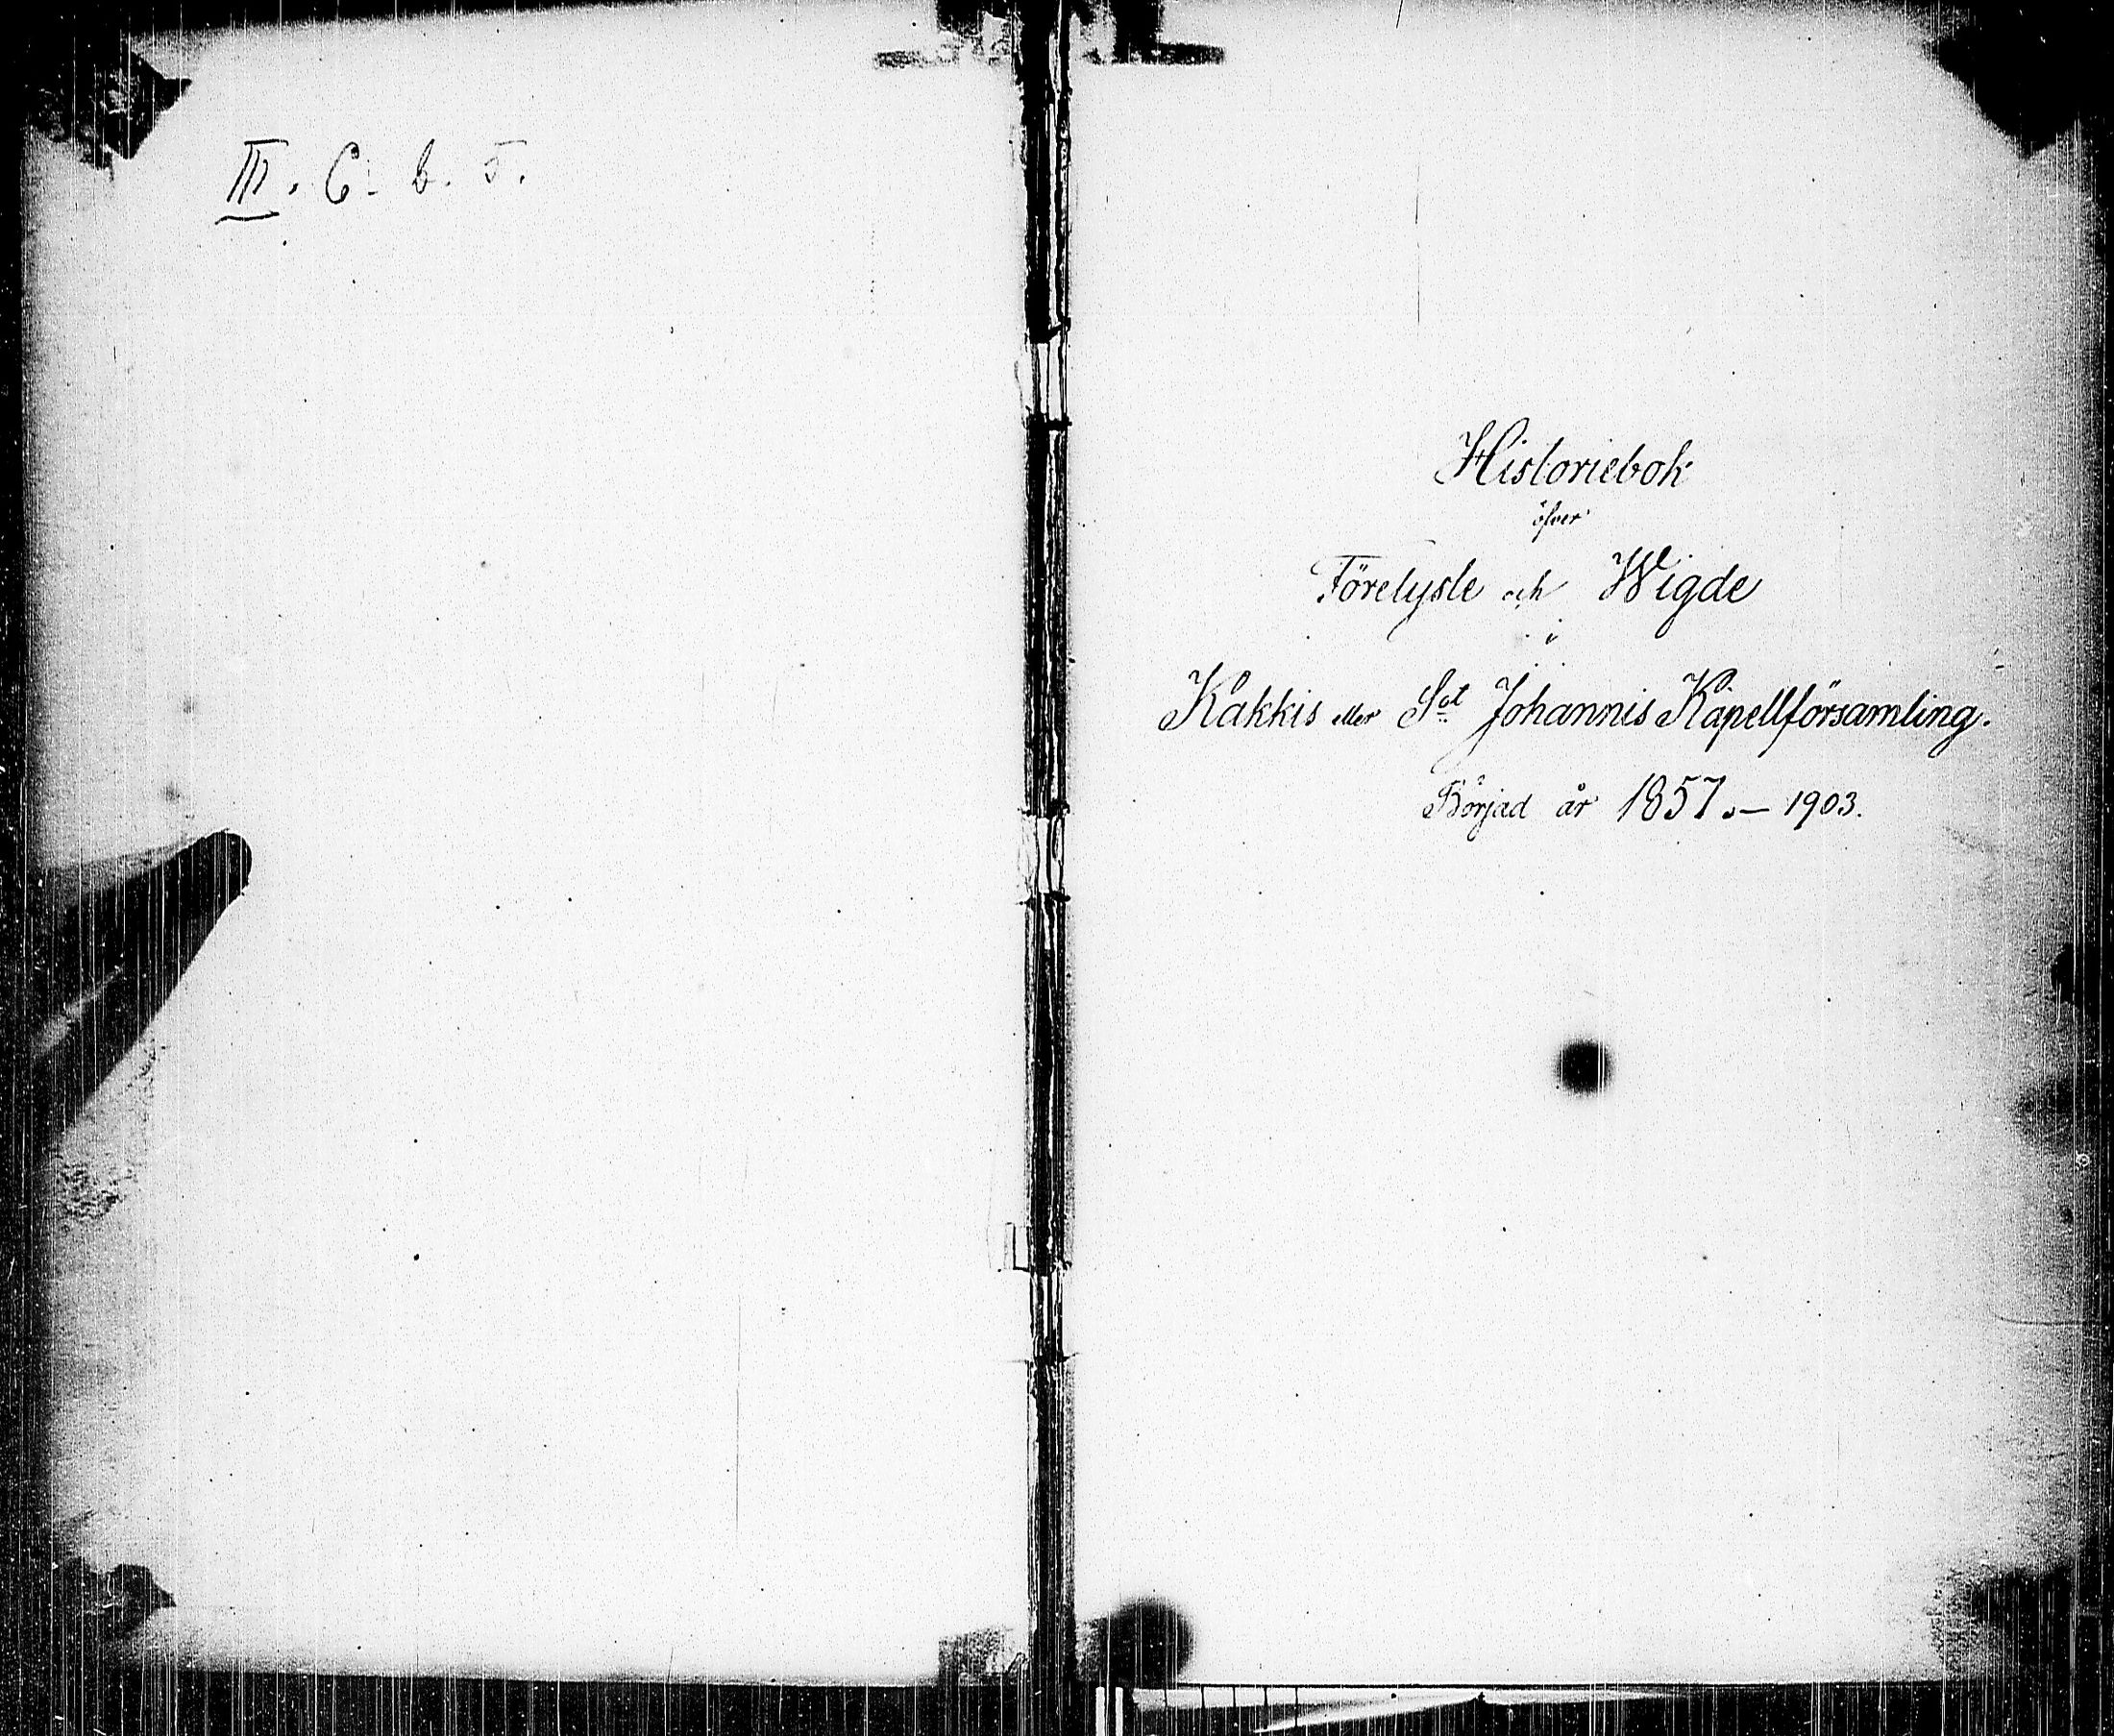 III. C. b. 5.
Historiebok
öfver
Förelyste och Wigde
i
Kakkis eller Sct Johannis Kapellförsamling.
Börjad år 1857.— 1903.